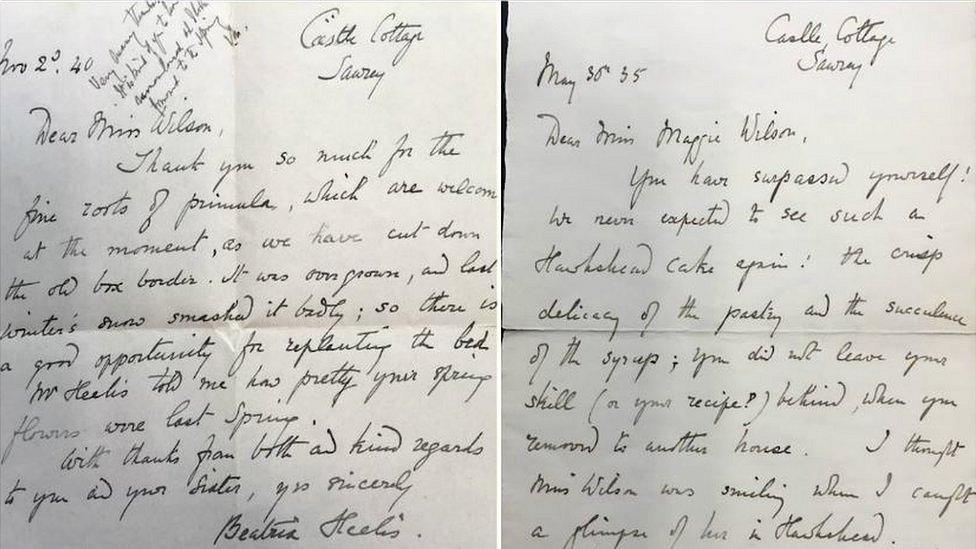 Very many thanks
Castle Cottage
Sawrey
Nov 2d. 40
Dear Miss Wilson,
Thank you so much for the
fine roots of primula, which are welcom
at the moment, as we have cut down
the old box border. It was overgrown, and last
winter's snow smashed it badly; so there is
a good opportunity for replanting the bed
Mr Heelis told me how pretty your spring
flowers were last Spring.
With thanks from both and kind regards
to you and your sister, yrs sincerely
Beatrix Heelis.
Castle Cottage
Sawrey
May 30th 35
Dear Miss Maggie Wilson,
You have surpassed yourself!
We never expected to see such a
Hawkshead cake again! the crisp
delicacy of the pastry and the succulence
of the syrup; you did not leave your
skill (or your recipe?) behind, when you
removed to another house. I thought
Miss Wilson was smiling when I caught
a glimpse of her in Hawkshead.